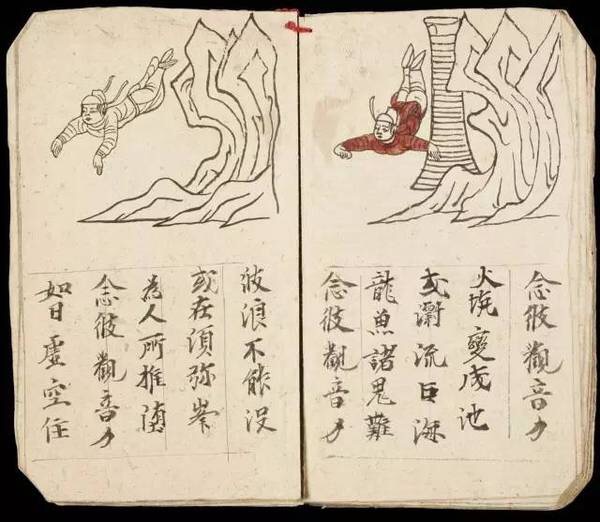 念彼觀音力
火坑變成池
或漂流巨海
龍魚諸鬼難
念彼觀音力
波浪不能没
或在須弥峯
為人所推堕
念彼觀音力
如日虛空住